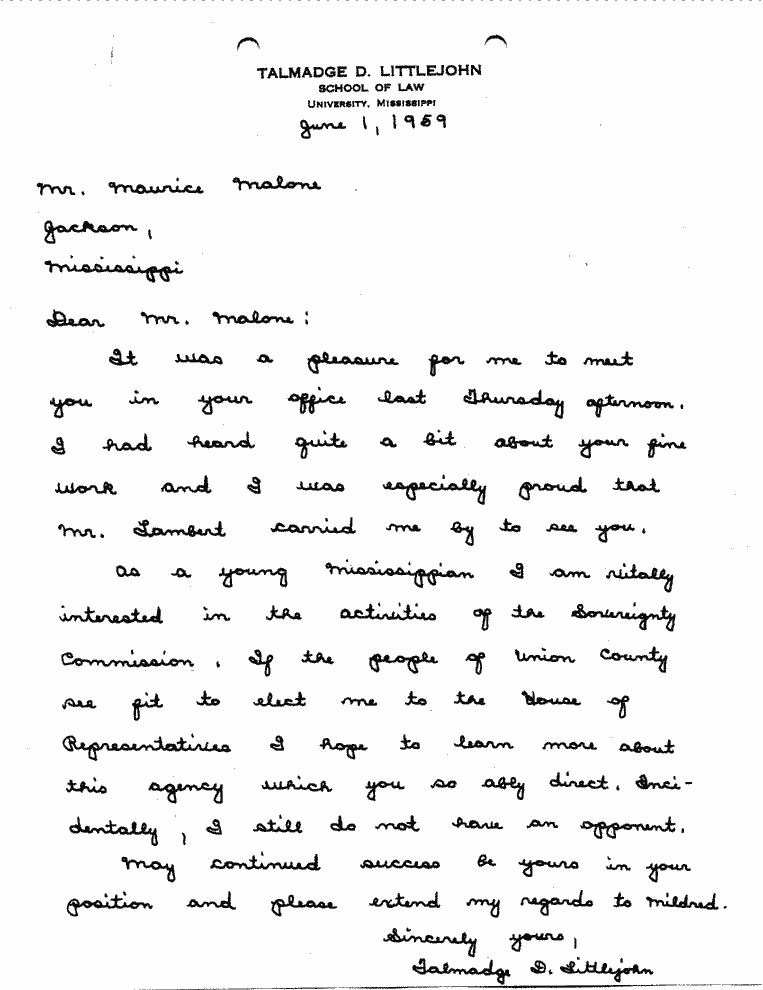 TALMADGE D. LITTLEJOHN
SCHOOL OF LAW
UNIVERSITY, MISSISSIPPI
June 1, 1959
Mr. Maurice Malone
Jackson,
Mississippi
Dear Mr. Malone:
It was a pleasure for me to meet
you in your office last Thursday afternoon.
I had heard quite a bit about your fine
work and I was especially proud that
Mr. Lambert carried me by to see you.
As a young Mississippian I am vitally
interested in the activities of the Sovereignty
Commission. If the people of Union County
see fit to elect me to the House of
Representatives I hope to learn more about
this agency which you so ably direct. Inci-
dentally, I still do not have an opponent.
May continued success be yours in your
position and please extend my regards to Mildred.
Sincerely yours,
Talmadge D. Littlejohn